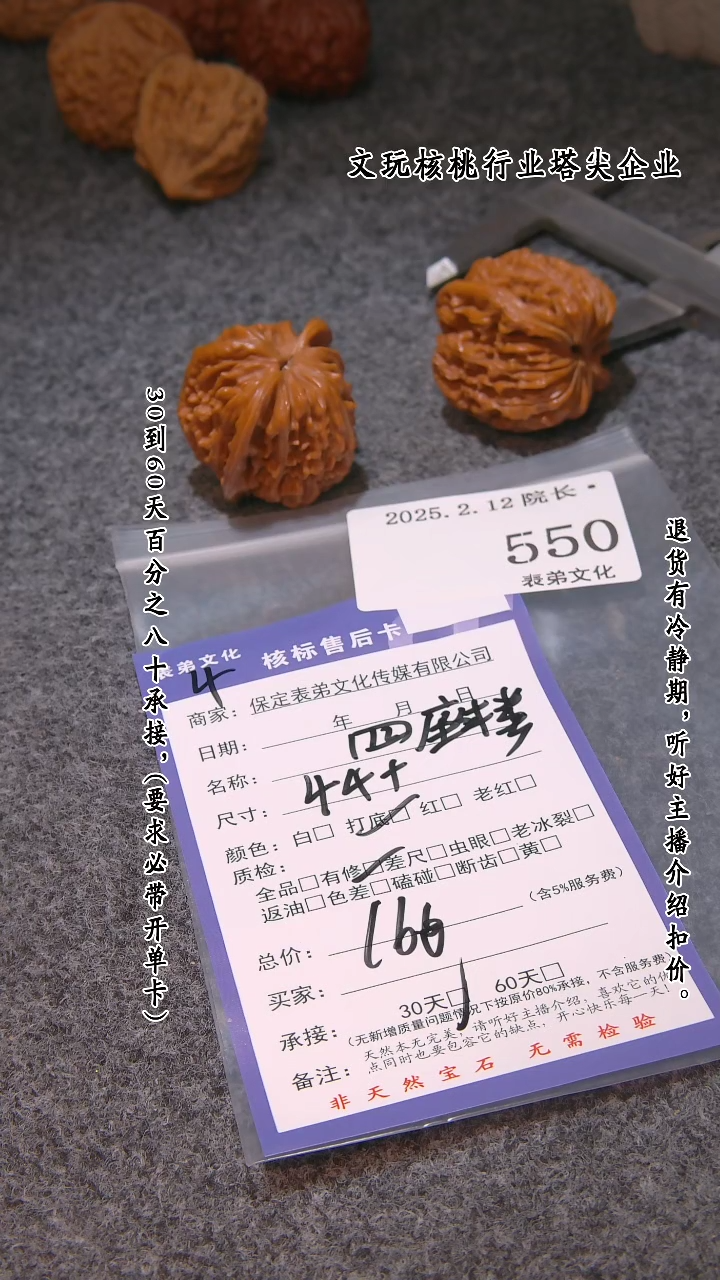 文玩核桃行业塔尖企业
30到60天百分之八十承接,(要求必带开单卡)
退货有冷静期,听好主播介绍扣价。
2025.2.12 院长
550
表弟文化
表弟文化 核标售后卡
4
商家: 保定表弟文化传媒有限公司
日期: 年 月 日
名称: 四座楼
尺寸: 44+
颜色: 白□ 打底□ 红□ 老红□
质检:
全品□有修□差尺□虫眼□老冰裂□
返油□色差□磕碰□断齿□黄□
总价: 166 (含5%服务费)
买家:
承接: 30天□ 60天□
(无新增质量问题情况下按原价80%承接,不含服务费)
备注: 天然本无完美,请听好主播介绍,喜欢它的优
点同时也要包容它的缺点,开心快乐每一天!
非天然宝石 无需检验